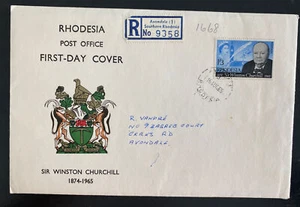 RHODESIA
POST OFFICE
FIRST-DAY COVER
Avondale (1)
Southern Rhodesia
R No 9358
1468
Sir Winston Churchill
R. VANDRE
COURT
RD
AVONDALE
SIR WINSTON CHURCHILL
1874-1965